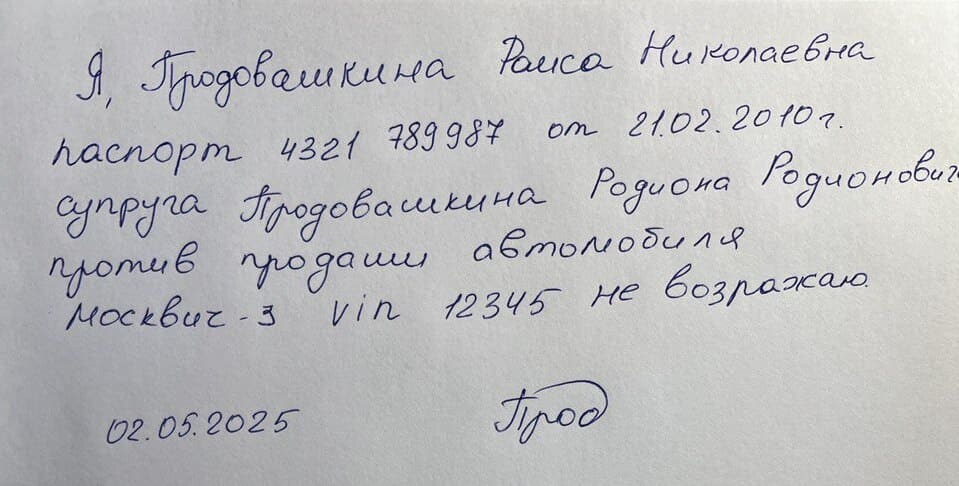 Я, Продовашкина Раиса Николаевна
паспорт 4321 789987 от 21.02.2010г.
супруга Продовашкина Родиона Родионович
против продажи автомобиля
Москвич-3 vin 12345 не возражаю.
02.05.2025 Прод